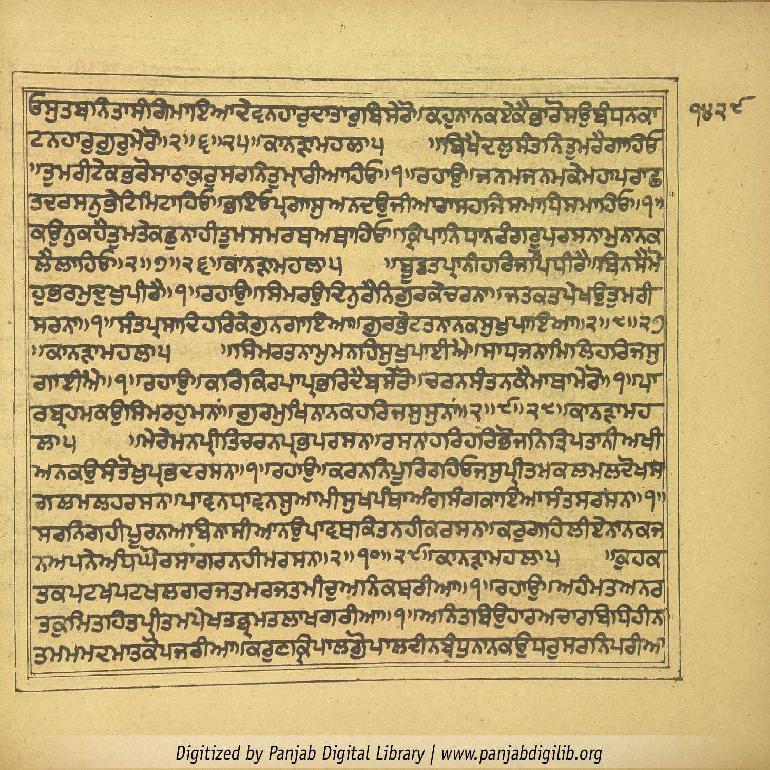 ਓਸੁਤਬਨਿਤਾਸੰਗਿਮਾਇਆਦੇਵਨਹਾਰੁਦਾਤਾਰੁਬਿਸੇਰੋ॥ਕਹੁਨਾਨਕਏਕੈਭਾਰੋਸਉਬੰਧਨਕਾ
੧੪੨੯
ਟਨਹਾਰੁਗੁਰੁਮੇਰੋ॥੨॥੬॥੨੫॥ਕਾਨੜਾਮਹਲਾ੫ ॥ਬਿਖੈਦਲੁਸੰਤਨਿਤੁਮਰੈਗਾਹਿਓ
॥ਤੁਮਰੀਟੇਕਭਰੋਸਾਠਾਕੁਰਸਰਨਿਤੁਮ੍ਹਾਰੀਆਹਿਓ॥੧॥ਰਹਾਉ॥ਜਨਮਜਨਮਕੇਮਹਾਪਰਾਛ
ਤਦਰਸਨੁਭੇਟਿਮਿਟਾਹਿਓ॥ਭਇਓਪ੍ਰਗਾਸੁਅਨਦਉਜੀਆਰਾਸਹਜਿਸਮਾਧਿਸਮਾਹਿਓ॥੧॥
ਕਉਨੁਕਹੈਤੁਮਤੇਕਛੁਨਾਹੀਤੁਮਸਮਰਥਅਥਾਹਿਓ॥ਕ੍ਰਿਪਾਨਿਧਾਨਰੰਗਰੂਪਰਸਨਾਮੁਨਾਨਕ
ਲੈਲਾਹਿਓ॥੨॥੭॥੨੬॥ਕਾਨੜਾਮਹਲਾ੫ ॥ਬੂਡਤਪ੍ਰਾਨੀਹਰਿਜਪਿਧੀਰੈ॥ਬਿਨਸੈਮੋ
ਹੁਭਰਮੁਦੁਖੁਪੀਰੈ॥੧॥ਰਹਾਉ॥ਸਿਮਰਉਦਿਨੁਰੈਨਿਗੁਰਕੇਚਰਨਾ॥ਜਤਕਤਪੇਖਉਤੁਮਰੀ
ਸਰਨਾ॥੧॥ਸੰਤਪ੍ਰਸਾਦਿਹਰਿਕੇਗੁਨਗਾਇਆ॥ਗੁਰਭੇਟਤਨਾਨਕਸੁਖੁਪਾਇਆ॥੨॥੮॥੨੭
॥ਕਾਨੜਾਮਹਲਾ੫ ॥ਸਿਮਰਤਨਾਮੁਮਨਹਿਸੁਖੁਪਾਈਐ॥ਸਾਧਜਨਾਮਿਲਿਹਰਿਜਸੁ
ਗਾਈਐ॥੧॥ਰਹਾਉ॥ਕਰਿਕਿਰਪਾਪ੍ਰਭਰਿਦੈਬਸੇਰੋ॥ਚਰਨਸੰਤਨਕੈਮਾਥਾਮੇਰੋ॥੧॥ਪਾ
ਰਬ੍ਰਹਮਕਉਸਿਮਰਹੁਮਨਾਂ॥ਗੁਰਮੁਖਿਨਾਨਕਹਰਿਜਸੁਸੁਨਾਂ॥੨॥੯॥੨੮॥ਕਾਨੜਾਮਹ
ਲਾ੫ ॥ਮੇਰੇਮਨਪ੍ਰੀਤਿਚਰਨਪ੍ਰਭਪਰਸਨ॥ਰਸਨਾਹਰਿਹਰਿਭੋਜਨਿਤ੍ਰਿਪਤਾਨੀਅਖੀ
ਅਨਕਉਸੰਤੋਖੁਪ੍ਰਭਦਰਸਨ॥੧॥ਰਹਾਉ॥ਕਰਨਨਿਪੂਰਿਰਹਿਓਜਸੁਪ੍ਰੀਤਮਕਲਮਲਦੋਖਸ
ਗਲਮਲਹਰਸਨ॥ਪਾਵਨਧਾਵਨਸੁਆਮੀਸੁਖਪੰਥਾਅੰਗਸੰਗਕਾਇਆਸੰਤਸਰਸਨ॥੧॥
ਸਰਨਿਗਹੀਪੂਰਨਅਬਿਨਾਸੀਆਨਉਪਾਵਥਕਿਤਨਹੀਕਰਸਨ॥ਕਰੁਗਹਿਲੀਏਨਾਨਕਜ
ਨਅਪਨੇਅੰਧਘੋਰਸਾਗਰਨਹੀਮਰਸਨ॥੨॥੧੦॥੨੯॥ਕਾਨੜਾਮਹਲਾ੫ ॥ਕੁਹਕ
ਤਕਪਟਖਪਟਖਲਗਰਜਤਮਰਜਤਮੀਚੁਅਨਿਕਬਰੀਆ॥੧॥ਰਹਾਉ॥ਅਹੰਮਤਅਨਰ
ਤਕੁਮਿਤਹਿਤਪ੍ਰੀਤਮਪੇਖਤਭ੍ਰਮਤਲਾਖਗਰੀਆ॥੧॥ਅਨਿਤਬਿਉਹਾਰਅਚਾਰਬਿਧਿਹੀਨ
ਤਮਮਮਦਮਾਤਕੋਪਜਰੀਆ॥ਕਰੁਣਾਕ੍ਰਿਪਾਲਗੋੁਪਾਲਦੀਨਬੰਧੁਨਾਨਕਉਧਰੁਸਰਨਿਪਰੀਆ
Digitized by Panjab Digital Library | www.panjabdigilib.org